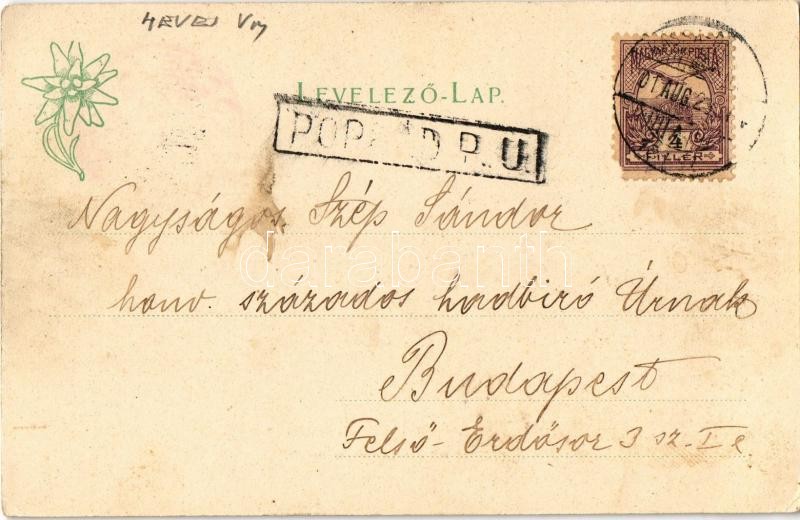 LEVELEZŐ-LAP.
MAGYAR KIR. POSTA
01 AUG. 2
4
FILLÉR
P. U.
Nagyságos Szép Sándor
honv. százados hadbiró Úrnak
Budapest
Felső-Erdősor 3 sz. I e
darabanth